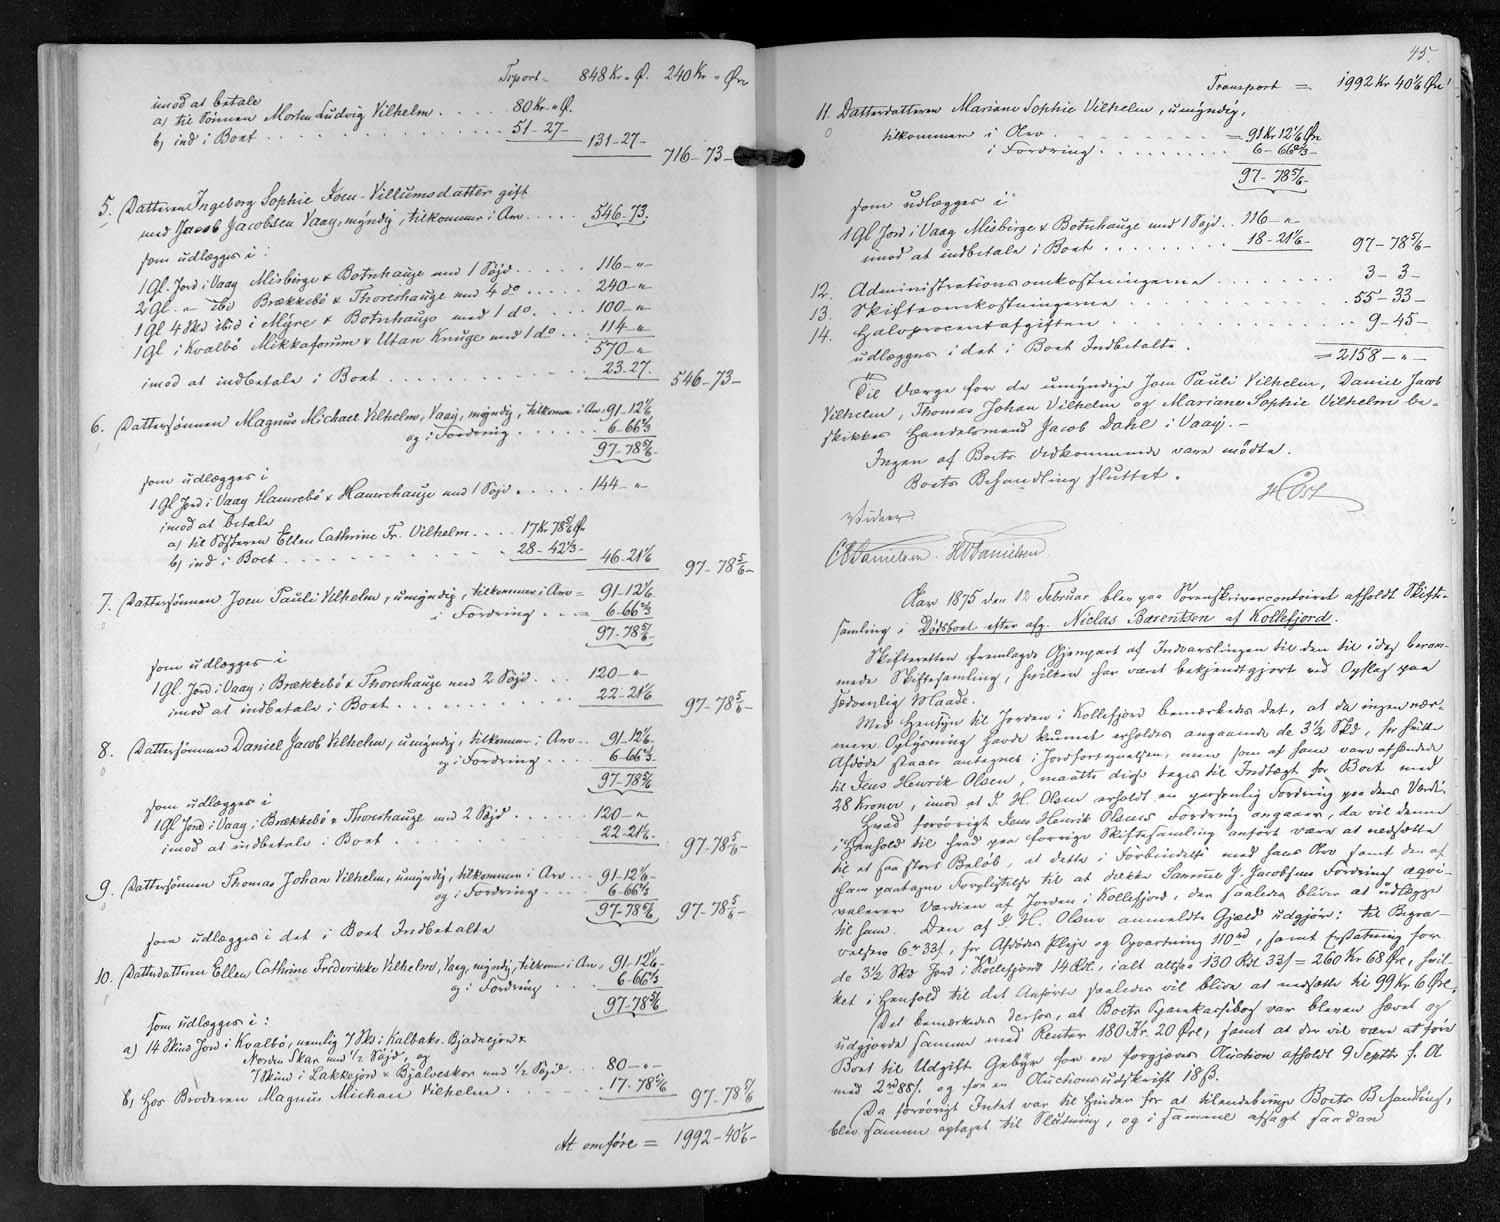 Trport 848 Kr. " Ø. 240 Kr " Øre
imod at betale
a) til Sønnen Morten Ludvig Vilhelm . . . . 80 Kr. " Ø.
b) ind i Boet . . . . . . . . . . 51 - 27 -
131 - 27 -
716 - 73 -
5. Datteren Ingeborg Sophie Joen-Villumsdatter gift
med Jacob Jacobsen Vaag, myndig, tilkommer i Arv . . . . 546 - 73.
som udlægges i:
1 Gl. Jord i Vaag Misbirge & Botnhauge med 1 Søjd . . . . . 116 - "
2 Gl. " ibd Brækkebø & Thoreshauge med 4 do . . . . . 240 - "
1 Gl 4 Skd ibid i Myre & Botnhauge med 1 do . . . . 100 - "
1 Gl i Kvalbø Mikkaforum & Utan Knuge med 1 do . . . 114 - "
570 - "
imod at indbetale i Boet . . . . . . . . . . 23. 27.
546 - 73 -
6. Dattersønnen Magnus Michael Vilhelm, Vaag, myndig, tilkomme i Arv = 91 - 12 1/6
og i Fordring . . . . . . 6 - 66 2/3
97 - 78 5/6 -
som udlægges i
1 Gl Jord i Vaag Hamrebø & Hamrehauge med 1 Søjd . . . . . 144 - "
imod at betale
a) til Søsteren Ellen Cathrine Fr. Vilhelm . . . . 17 Kr 78 5/6 Øre
b) ind i Boet . . . . . . . . . . 28 - 42 1/3 -
46 - 21 1/6
97 - 78 5/6 -
7. Dattersønnen Joen Pauli Vilhelm, umyndig, tilkommer i Arv = 91 - 12 1/6
i Fordring . . . = 6 - 66 2/3
97 - 78 5/6 -
som udlægges i
1 Gl. Jord i Vaag i Brækkebø & Thoreshauge med 2 Søjd . . . 120 - "
imod at indbetale i Boet . . . . . . . . . . 22 - 21 1/6
97 - 78 5/6 -
8. Dattersønnen Daniel Jacob Vilhelm, umyndig, tilkommer i Arv . . 91 - 12 1/6 -
og i Fordring . . . 6 - 66 2/3
97 - 78 5/6 -
som udlægges i
1 Gl Jord i Vaag i Brækkebø & Thoreshauge med 2 Søjd . . . . . . 120 - "
imod at indbetale i Boet . . . . . . . . . . 22 - 21 1/6 -
97 - 78 5/6 -
9. Dattersønnen Thomas Johan Vilhelm, umyndig, tilkommer i Arv . . . 91 - 12 1/6 -
og i Fordring . . . . 6 - 66 2/3
97 - 78 5/6 97 - 78 5/6 -
som udlægges i det i Boet Indbetalte
10. Datterdatteren Ellen Cathrine Frederikke Vilhelm, Vaag, myndig, tilkomme i Arv = 91 - 12 1/6 -
og i Fordring . . . . 6 - 66 2/3
97 - 78 5/6
som udlægges i:
a) 14 Skind Jord i Kvalbø, nemlig 7 Sks i Kalbaks. Bjadnejon &
Norden Skar med 1/2 Søjd, og
7 Skind i Lakkejord & Bjalveskor med 1/2 Søjd . . . 80 - " -
b) Hos Broderen Magnus Michael Vilhelm . . . . . . 17 - 78 5/6
97 - 78 5/6
At omføre = 1992 - 40 1/6 -
45.
Transport = 1992 Kr 40 1/6 Øre
11. Datterdatteren Mariane Sophie Vilhelm, umyndig,
tilkommer i Arv . . . . . . . . . = 91 Kr 12 1/6 Øre
i Fordring . . . . . . . . . 6 - 66 2/3 -
97 - 78 5/6 -
som udlægges i
1 Gl Jord i Vaag Misbirge & Botnhauge med 1 Søjd . . 116 - "
imod at indbetale i Boet . . . . . . . . . 18 - 21 1/6 -
97 - 78 5/6 -
12. Administrationsomkostningerne . . . . . . . . . 3 - 3 -
13. Skifteomkostningerne . . . . . . . . . . . 55 - 33 -
14. Halvprocentafgiften . . . . . . . . . . . 9 - 45 -
udlægges i det i Boet Indbetalte.
= 2158 - " -
Til Værge for de umyndige Joen Pauli Vilhelm, Daniel Jacob
Vilhelm, Thomas Johan Vilhelm og Mariane Sophie Vilhelm be-
skikkes Handelsmand Jacob Dahl i Vaag. -
Ingen af Boets Vedkommende vare mødte.
Boets Behandling sluttet.
HOst
Vidner.
C Danielsen. H Danielsen
Aar 1875 den 12 Februar blev paa Sorenskrivercontoiret afholdt Skifte-
samling i Dødsboet efter afg. Niclas Bærentsen af Kollefjord.
Skifteretten fremlagde Gjenpart af Indvarslingen til den til idag beram-
mede Skiftesamling, hvilken har været bekjendtgjort ved Opslag paa
sædvanlig Maade.
Med Hensyn til Jorden i Kollefjord bemærkedes det, at da ingen nær-
mere Oplysning havde kunnet erholdes angaaende de 3 1/2 Skd, for hvilke
Afdøde staaer antegnet i Jordfortegnelsen, men som af ham vare afhændede
til Jens Henrik Olsen, maatte disse tages til Indtægt for Boet med
28 Kroner, imod at J. H. Olsen erholdt en personlig Fordring paa dens Værdi.
Hvad forøvrigt Jens Henrik Olsens Fordring angaaer, da vil denne
i Henhold til hvad paa forrige Skiftesamling anført være at nedsætte
til et saa stort Beløb, at dette i Forbindelse med hans Arv samt den af
ham paatagne Forpligtelse til at dække Samuel J. Jacobsens Fordring æqvi-
valerer Værdien af Jorden i Kollefjord, der saaledes bliver at udlægge
til ham. Den af J. H. Olsen anmeldte Gjæld udgjør: til Begra-
velsen 6 rd 33 s, for Afdødes Pleje og Opvartning 110 rd, samt Erstatning for
de 3 1/2 Skd Jord i Kollefjord 14 Rd., ialt altsaa 130 Rd. 33 s = 260 Kr 68 Øre, hvil-
ket i Henhold til det Anførte saaledes vil blive at nedsætte til 99 Kr 6 Øre.
Det bemærkedes derhos, at Boets Sparekassebog var bleven hævet og
udgjorde samme med Renter 180 Kr. 20 Øre, samt at der vil være at føre
Boet til Udgift Gebyr for en forgjæves Auction afholdt 9 Septbr f. A
med 2 rd 85 s. og for en Auctionsudskrift 18 ß.
Da forøvrigt Intet var til Hinder for at tilendebringe Boets Behandling,
blev samme optaget til Slutning, og i samme afsagt saadan